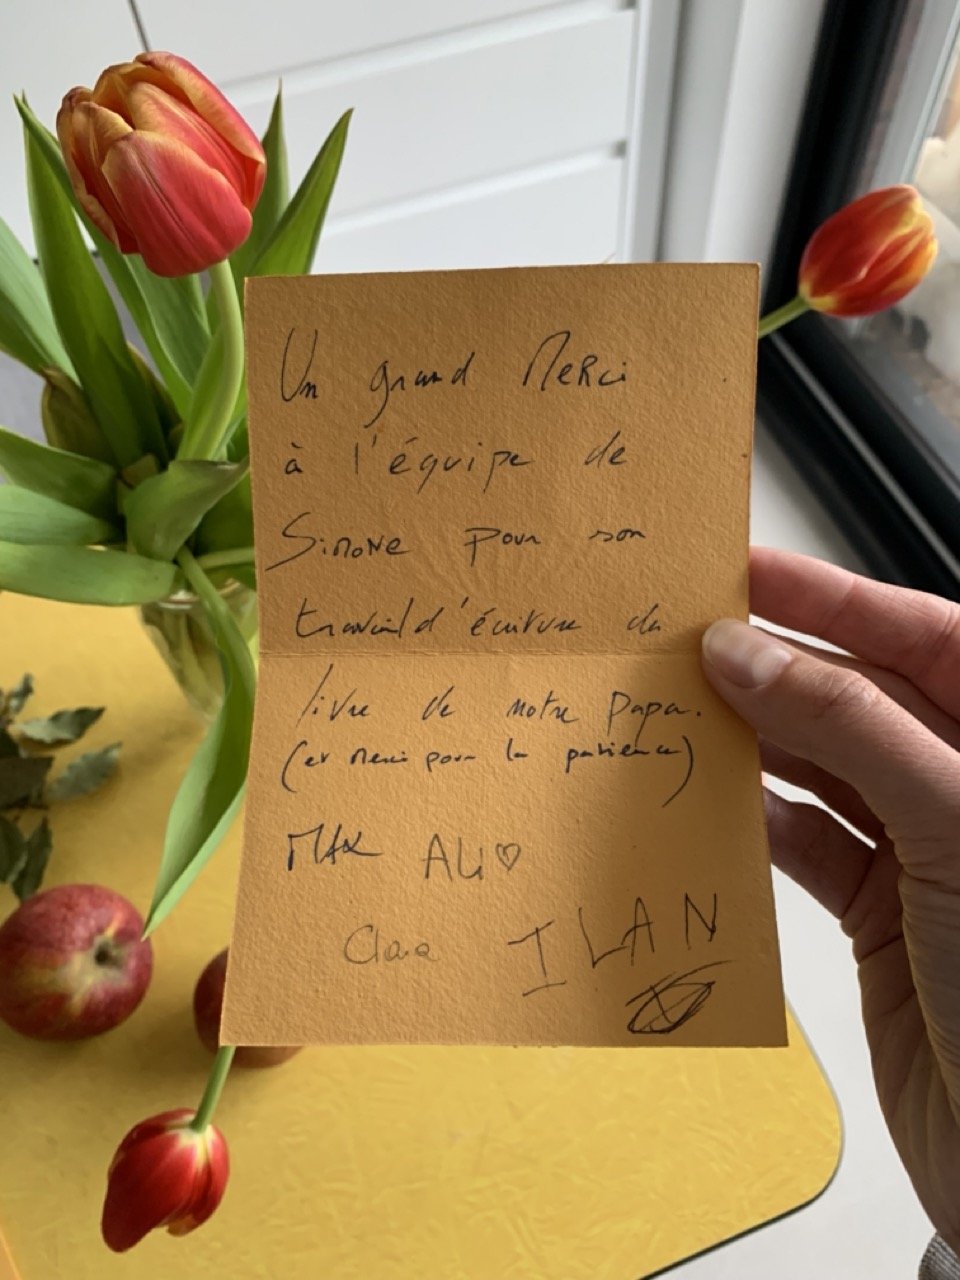 Un grand Merci
à l'équipe de
Simone pour son
travail d'écriture du
livre de notre papa.
(et merci pour la patience)
MAX ALI♡
Clara ILAN